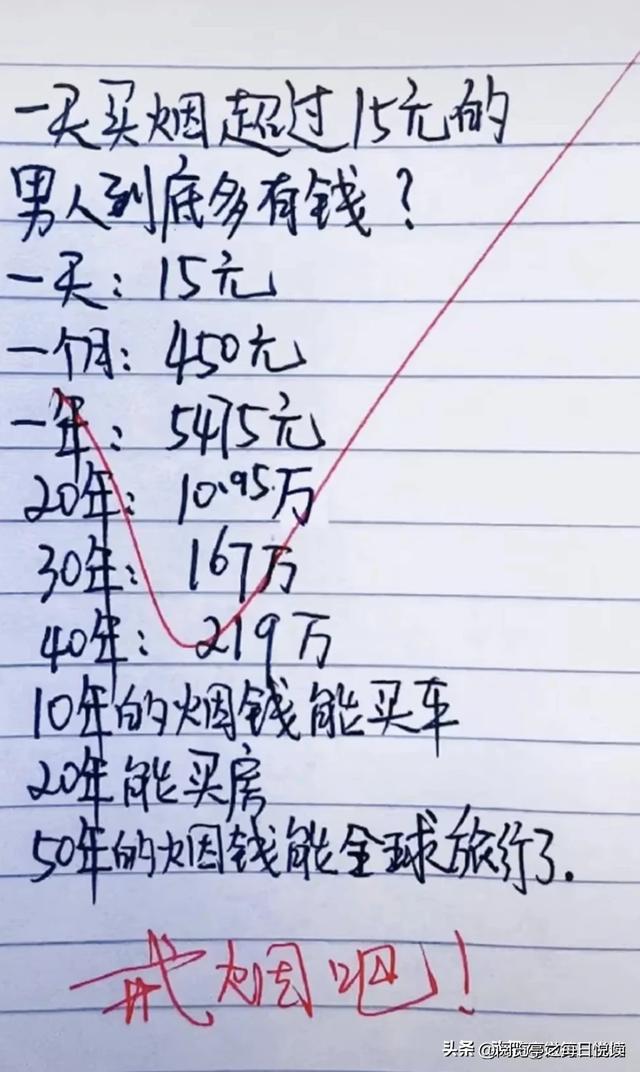 一天买烟超过15元的
男人到底多有钱？
一天：15元
一个月：450元
一年：5475元
20年：10.95万
30年：167万
40年：219万
10年的烟钱能买车
20年能买房
50年的烟钱能全球旅行了.
戒烟吧！
头条